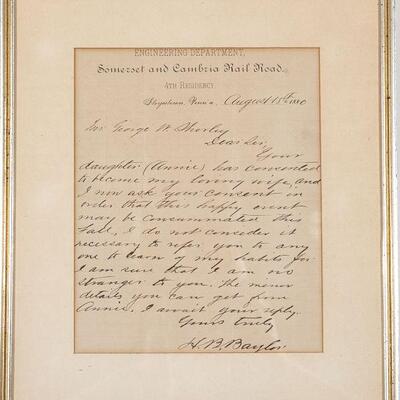 ENGINEERING DEPARTMENT,
Somerset and Cambria Rail Road.
4TH RESIDENCY
Stoystown, Penn'a, August 15th 1880
Mr George W Shorley
Dear Sir,
Your
daughter (Annie) has consented
to become my loving wife, and
I now ask your consent in
order that this happy event
may be consummated this
fall, I do not consider it
necessary to refer you to any
one to learn of my habits for
I am sure that I am no
stranger to you. The minor
details you can get from
Annie. I await your reply.
Yours truly
H. B. Baylor